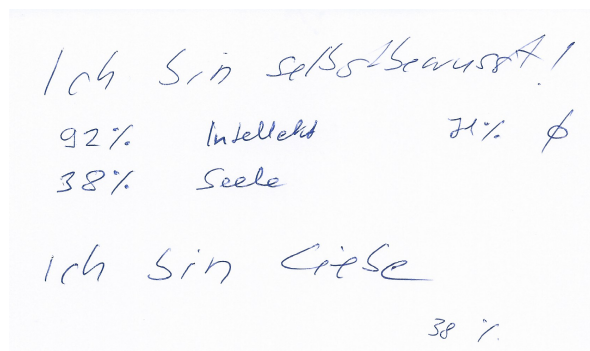 Ich bin selbstbewusst!
92% Intellekt 71% ϕ
38% Seele
Ich bin Liebe
38 %